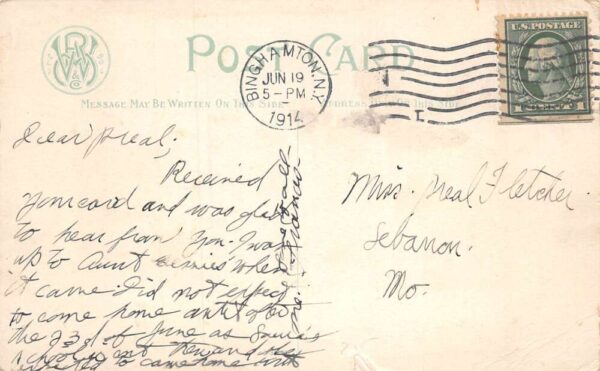 POST CARD
MESSAGE MAY BE WRITTEN ON THIS SIDE
ADDRESS ON THIS SIDE
BINGHAMTON, N.Y.
JUN 19
5-PM
1914
1
U.S. POSTAGE
Dear Preal;
Received
your card and was glad
to hear from you. I was
up to Aunt when
it came. Did not expect
to come home until after
the 23d of June as
school is out then and she
wanted to come home with
me. to all
Miss. Preal Fletcher.
Lebanon.
Mo.